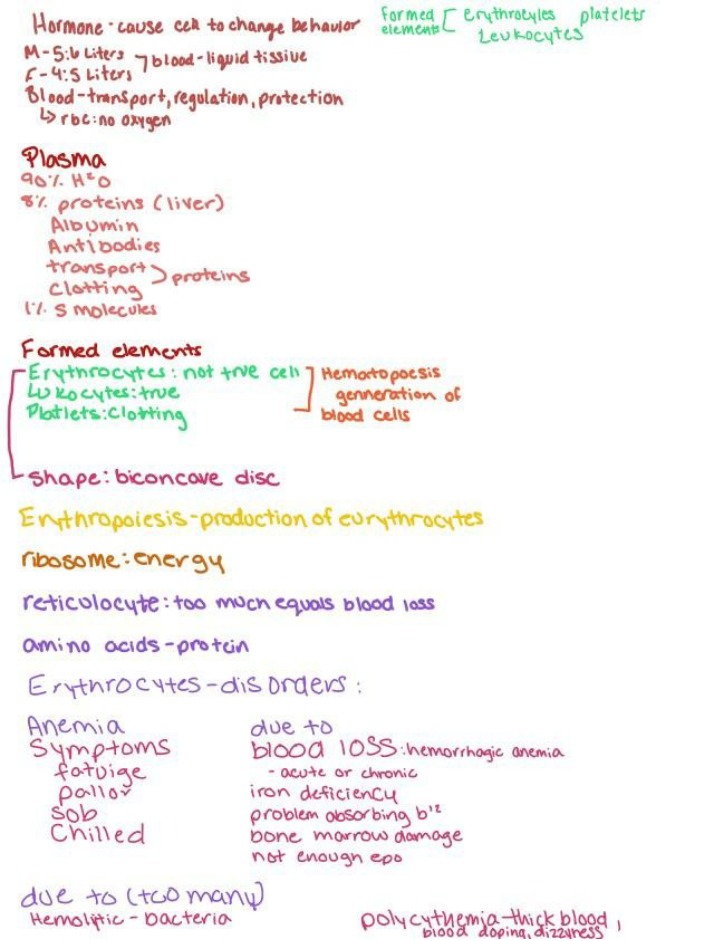 Hormone - cause cell to change behavior
Formed elements [ erythrocyles platelets
Leukocytes
M-5:6 Liters
F-4:5 Liters
7 blood-liquid tissive
Blood-transport, regulation, protection
↳ rbc: no oxygen
Plasma
90% H²O
8% proteins (liver)
Albumin
Antibodies
transport
Clotting
> proteins
1% S molecules
Formed elements
Erythrocytes: not true cell
Lukocytes: true
Platlets: Clotting
] Hematopoesis
genneration of
blood cells
Shape: biconcave disc
Erythropoiesis-production of eurythrocytes
ribosome: energy
reticulocyte: too much equals blood loss
amino acids-protein
Erythrocytes-disorders:
Anemia
Symptoms
fatuige
pallor
sob
Chilled
due to
blood loss: hemorrhagic anemia
- acute or chronic
iron deficiency
problem absorbing b¹²
bone marrow damage
not enough epo
due to (too many)
Hemolitic - bacteria
polycythemia-thick blood,
blood doping, dizzyness